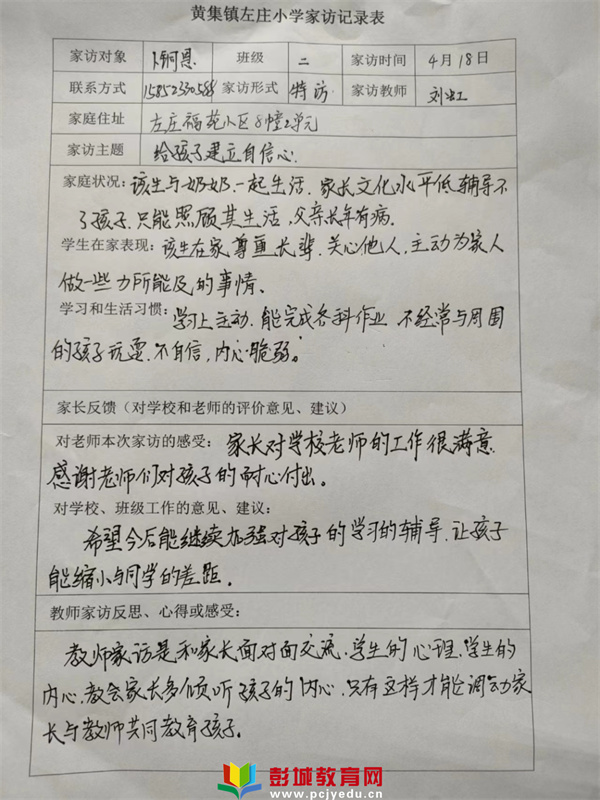 黄集镇左庄小学家访记录表
家访对象 卜钶恩 班级 二 家访时间 4月18日
联系方式 家访形式 特访 家访教师 刘红
家庭住址 左庄福苑小区8幢2单元
家访主题 给孩子建立自信心.
家庭状况: 该生与奶奶一起生活.家长文化水平低辅导不
了孩子.只能照顾其生活,父亲长年有病.
学生在家表现: 该生在家尊重长辈.关心他人.主动为家人
做一些力所能及的事情、
学习和生活习惯: 学习上主动.能完成各科作业 不经常与周围
的孩子玩耍.不自信,内心脆弱。
家长反馈(对学校和老师的评价意见、建议)
对老师本次家访的感受: 家长对学校老师的工作很满意
感谢老师们对孩子的耐心付出。
对学校、班级工作的意见、建议:
希望今后能继续加强对孩子的学习的辅导.让孩子
能缩小与同学的差距。
教师家访反思、心得或感受:
教师家访是和家长面对面交流.学生的心理.学生的
内心.教会家长多倾听孩子的内心.只有这样才能调动家
长与教师共同教育孩子.
彭城教育网
www.pcjyedu.cn